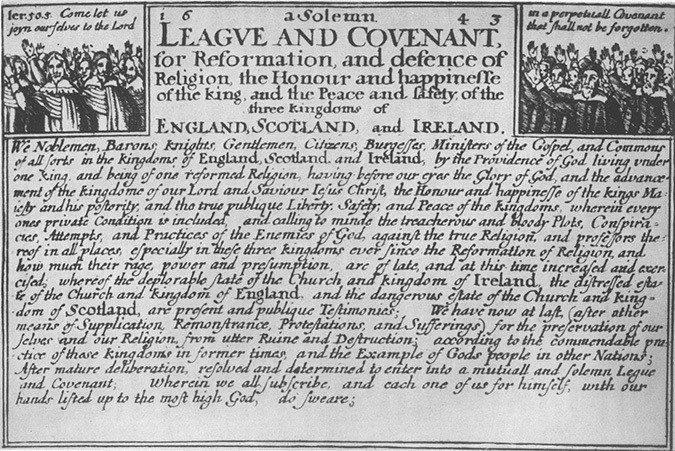 Ier: 50. 5. Come let us
joyn ourselves to the Lord
16 a Solemn 43
LEAGVE AND COVENANT,
for Reformation, and defence of
Religion, the Honour and happinesse
of the king, and the Peace and safety of the
three kingdoms of
ENGLAND, SCOTLAND, and IRELAND.
in a perpetuall Covenant
that shall not be forgotten.
We Noblemen, Barons, Knights, Gentlemen, Citizens, Burgesses, Ministers of the Gospel, and Commons
of all sorts in the kingdoms of England, Scotland, and Ireland, by the Providence of God living vnder
one King, and being of one reformed Religion, having before our eyes the Glory of God, and the advance-
ment of the kingdome of our Lord and Saviour Iesus Christ, the Honour and happinesse of the kings Ma-
iesty and his posterity, and the true publique Liberty, Safety, and Peace of the kingdoms, wherein every
ones private Condition is included, and calling to minde the treacherous and bloody Plots, Conspira-
cies, Attempts, and Practices of the Enemies of God, against the true Religion, and professors the-
reof in all places, especially in these three kingdoms ever since the Reformation of Religion, and
how much their rage, power and presumption, are of late, and at this time increased and exer-
cised; whereof the deplorable state of the Church and kingdom of Ireland, the distressed esta-
te of the Church and kingdom of England, and the dangerous estate of the Church and king-
dom of Scotland, are present and publique Testimonies; We have now at last, (after other
means of Supplication, Remonstrance, Protestations, and Sufferings) for the preservation of our
selves and our Religion, from utter Ruine and Destruction; according to the commendable pra-
ctice of these Kingdoms in former times, and the Example of Gods people in other Nations;
After mature deliberation, resolved and determined to enter into a mutuall and solemn Legue
and Covenant; Wherein we all subscribe, and each one of us for himself, with our
hands lifted up to the most high God, do sweare;